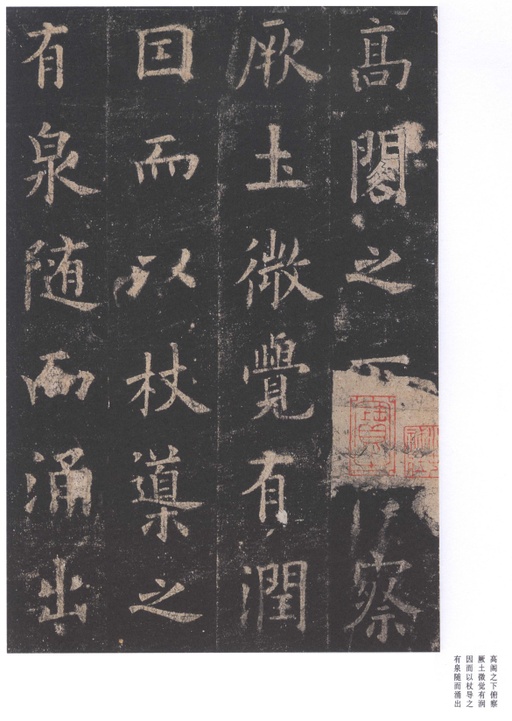 髙閣之下俯察
厥土微覺有潤
囙而以杖導之
有泉随而涌出
高阁之下俯察
厥土微觉有润
因而以杖导之
有泉随而涌出